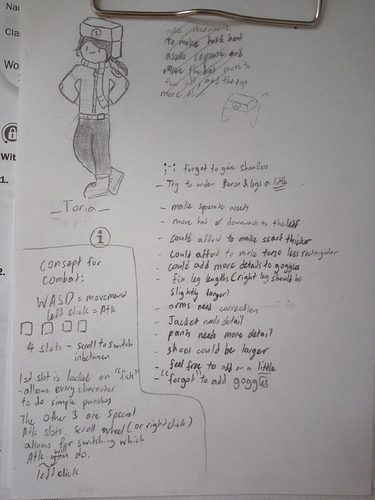 Na
Cla
Wo
Wit
1.
2.
make movements
to make back head
assets separate and
move the hat more to
the and the top
more
_Toria_
i
;-; forgot to give shoulders
- Try to widen torso & legs a little
- make separate assets
- move hat ↙ downwards to the left
- could afford to make scarf thicker
- could afford to make torso less rectangular
- could add more details to goggles
- fix leg lengths (right leg should be
slightly larger)
- arms need correction
- Jacket needs detail
- pants need more detail
- shoes could be larger
- feel free to add on a little
- "forgot" to add goggles
Consept for
combat:
WASD = movement
left click = Atk
4 slots - scroll to switch
inbetween
1st slot is locked on "fists"
- allows every character
to do simple punches
The other 3 are special
Atk slots. Scroll wheel (or right click)
allows for switching which
Atk you do.
left click